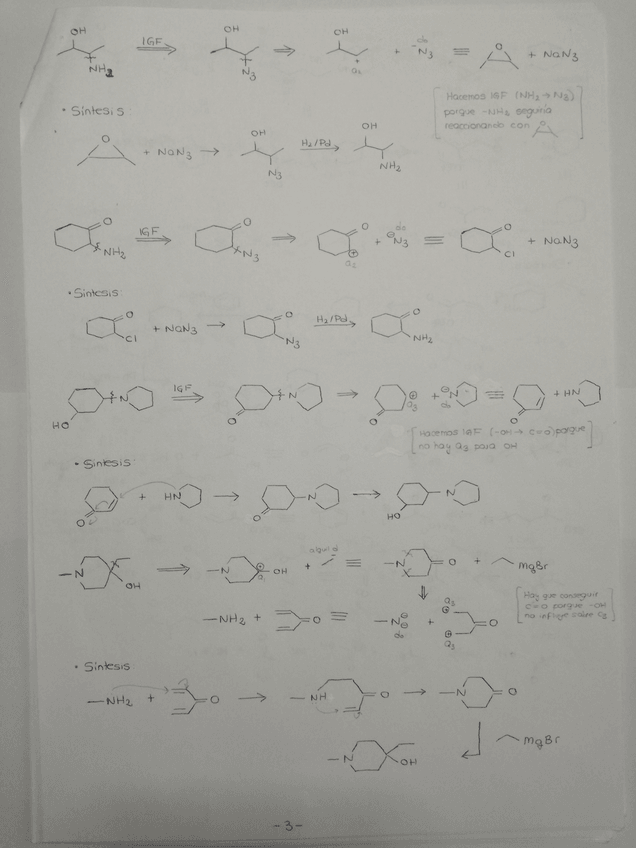 OH IGF OH OH d₀ O
NH₂ N₃ a₂ + ⁻N₃ ≡ + NaN₃
Hacemos IGF (NH₂ → N₃)
porque -NH₂ seguiría
reaccionando con O
• Síntesis:
O + NaN₃ → OH H₂/Pd OH
N₃ NH₂
O IGF O O d₀ O
NH₂ N₃ ⊕ a₂ + ⊖N₃ ≡ Cl + NaN₃
• Síntesis:
O + NaN₃ → O H₂/Pd O
Cl N₃ NH₂
N IGF N ⊕ a₃ + ⊖N d₀ ≡ + HN
HO O O O
Hacemos IGF (-OH → C=O) porque
no hay a₃ para OH
• Síntesis:
+ HN → N → N
O O HO
N OH ⇒ N ⊕ a₁ OH + alquil d ≡ N O + MgBr
Hay que conseguir
C=O porque -OH
no influye sobre C₃
NH₂ + O ≡ N⊖ d₀ + ⊕ a₃ O ⊕ a₃
• Síntesis:
NH₂ + O → NH O → N O
MgBr
N OH
-3-